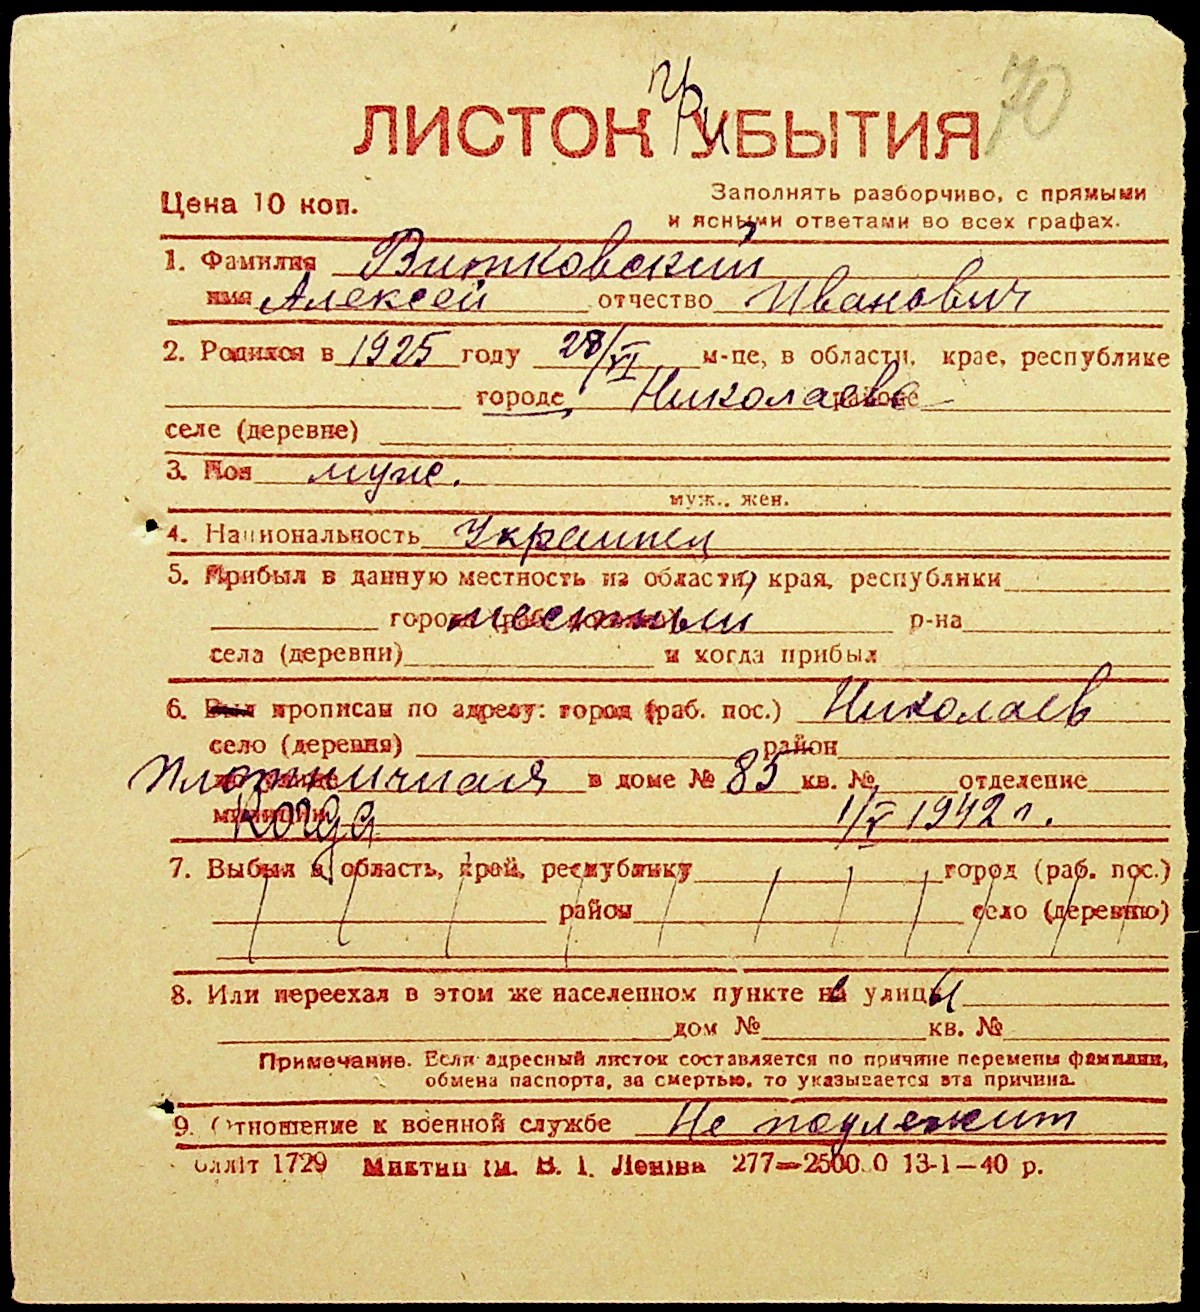 при 70
ЛИСТОК УБЫТИЯ
Цена 10 коп.
Заполнять разборчиво, с прямыми
и ясными ответами во всех графах.
1. Фамилия Витковский
имя Алексей отчество Иванович
2. Родился в 1925 году 28/VI м-це, в области, крае, республике
городе Николаеве районе
селе (деревне)
3. Пол муж.
муж., жен.
4. Национальность Украинец
5. Прибыл в данную местность из области, края, республики
города местный р-на
села (деревни) и когда прибыл
6. Был прописан по адресу: город (раб. пос.) Николаев
село (деревня) район
Плотничная в доме № 85 кв. № отделение
милиции Когда 1/V 1942 г.
7. Выбыл в область, край, республику город (раб. пос.)
район село (деревню)
8. Или переехал в этом же населенном пункте на улицы
дом № кв. №
Примечание. Если адресный листок составляется по причине перемены фамилии,
обмена паспорта, за смертью, то указывается эта причина.
9. Отношение к военной службе Не подлежит
1729 ім. В. І. Леніна 277—2500.0 13-1—40 р.